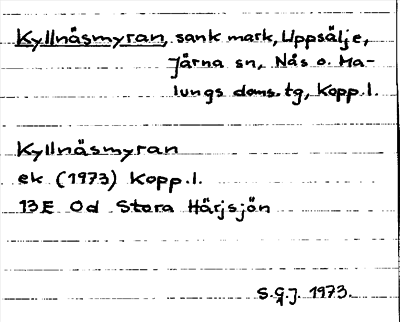 Kyllnäsmyran, sank mark, Uppsälje,
Järna sn, Nås o. Ma-
lungs doms. tg, Kopp.l.
Kyllnäsmyran
ek (1973) Kopp.l.
13E 0d Stora Härjsjön
S.G.J. 1973.